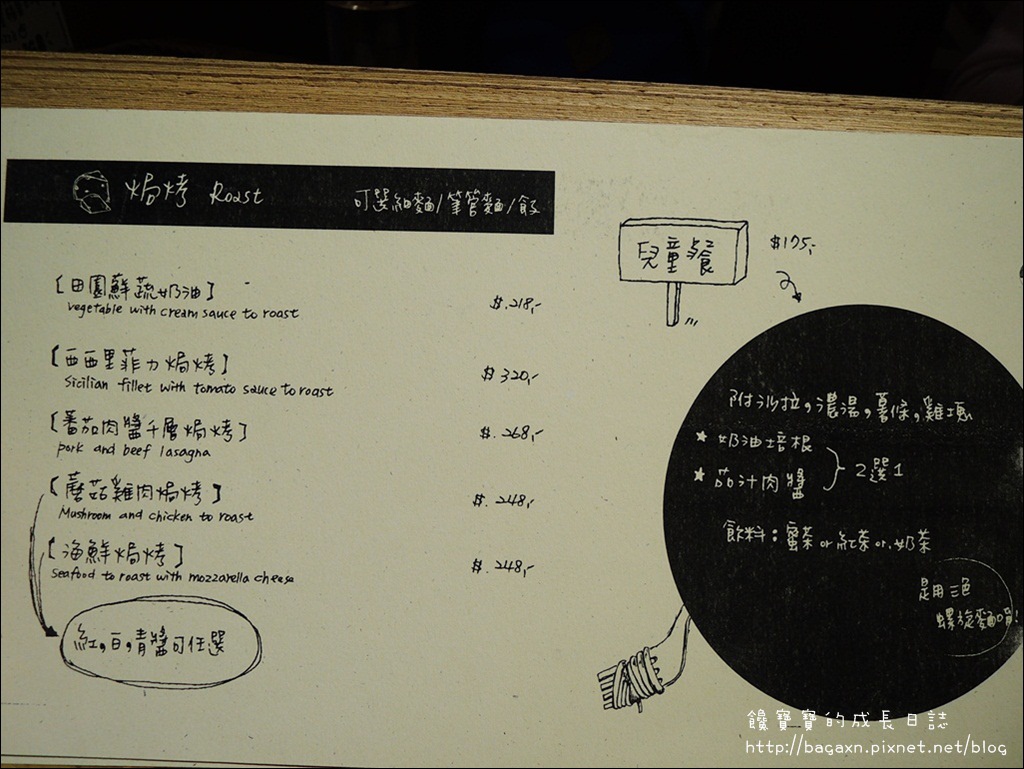 焗烤 Roast
可選細麵/筆管麵/飯
[田園鮮蔬奶油]
vegetable with cream sauce to roast
$.218,-
[西西里菲力焗烤]
Sicilian fillet with tomato sauce to roast
$320,-
[番茄肉醬千層焗烤]
pork and beef lasagna
$.268,-
[蘑菇雞肉焗烤]
Mushroom and chicken to roast
$.248,-
[海鮮焗烤]
Seafood to roast with mozzarella cheese
$.248,-
紅,白,青醬可任選
兒童餐
$175,-
附沙拉,濃湯,薯條,雞塊
★ 奶油培根
★ 茄汁肉醬
2選1
飲料:蜜茶or紅茶or.奶茶
是用三色
螺旋麵唷!
饞寶寶的成長日誌
http://bagaxn.pixnet.net/blog